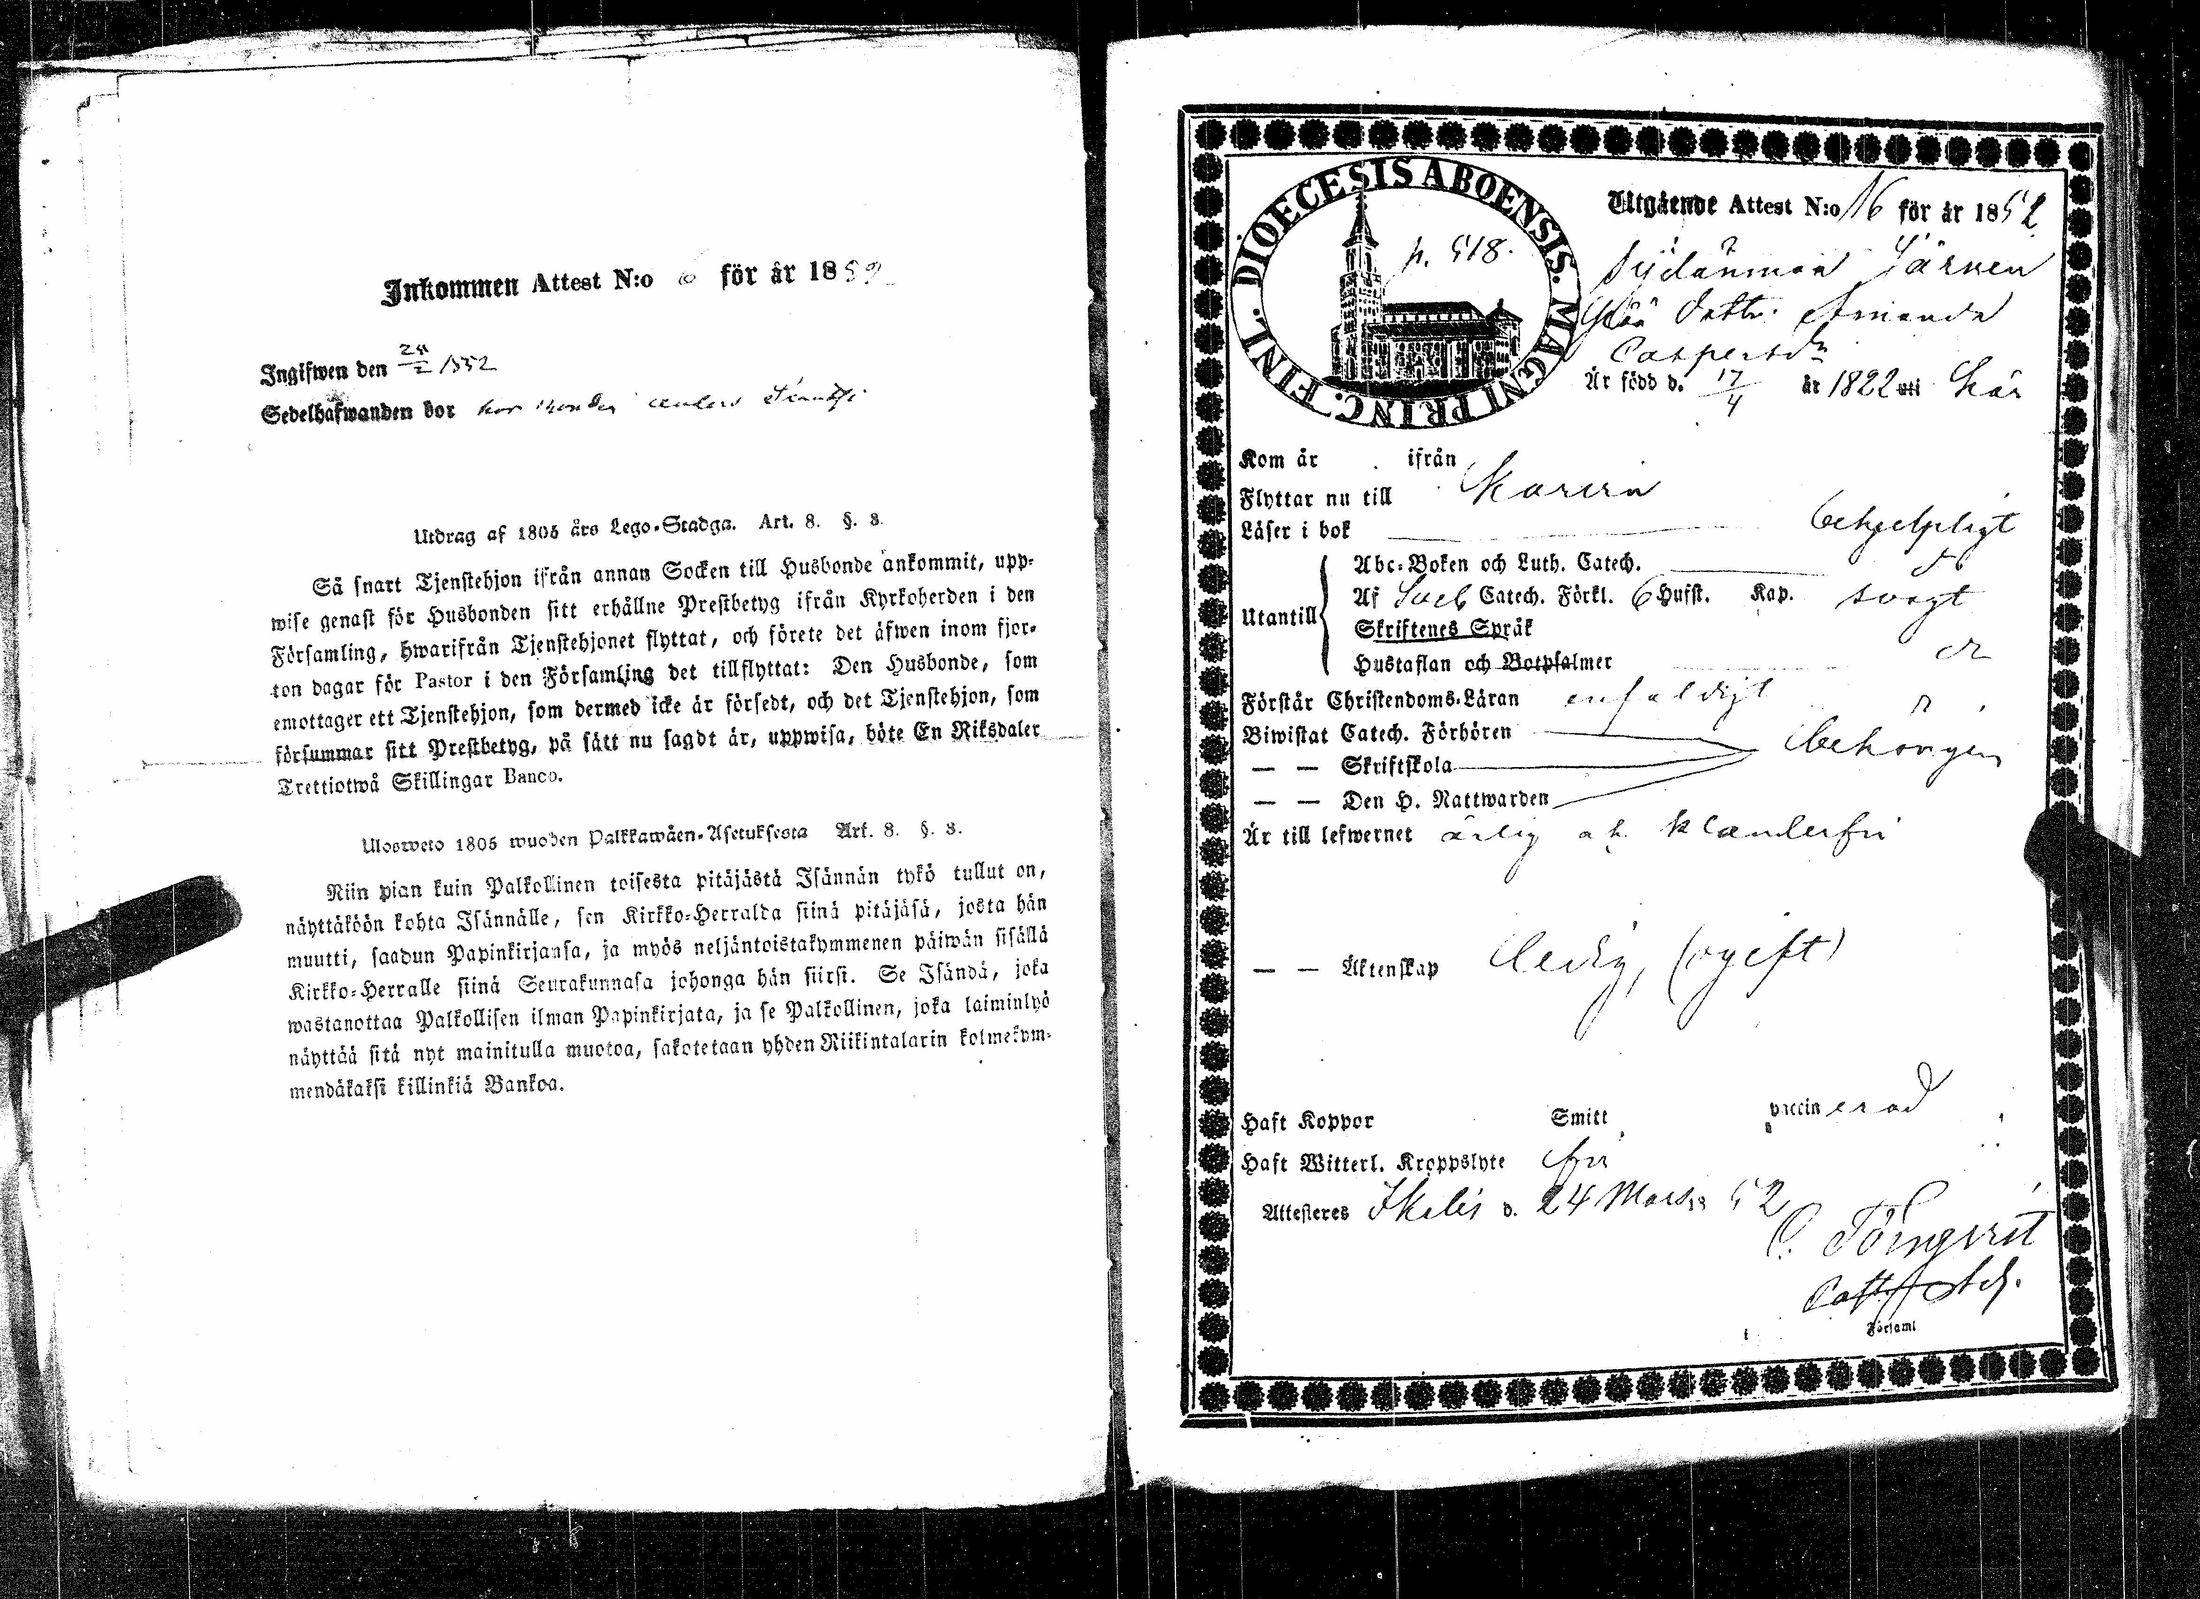 Inkommen Attest N:o 6 för år 1852
Ingifwen den 1852
Sedelhafwanden bor hos
Utdrag af 1805 års Lego-Stadga. Art. 8. §. 3.
Så snart Tjenstehjon ifrån annan Socken till Husbonde ankommit, upp-
wise genast för Husbonden sitt erhållne Prestbetyg ifrån Kyrkoherden i den
Församling, hwarifrån Tjenstehjonet flyttat, och förete det äfwen inom fjor-
ton dagar för Pastor i den Församling det tillflyttat: Den Husbonde, som
emottager ett Tjenstehjon, som dermed icke är försedt, och det Tjenstehjon, som
försummar sitt Prestbetyg, på sätt nu sagdt är, uppwisa, böte En Riksdaler
Trettiotwå Skillingar Banco.
Ulosweto 1805 wuoden Palkkawäen-Asetuksesta Art. 8. §. 3.
Niin pian kuin Palkollinen toisesta pitäjästä Isännän tykö tullut on,
näyttäköön kohta Isännälle, sen Kirkko-Herralda siinä pitäjäsä, josta hän
muutti, saadun Papinkirjansa, ja myös neljäntoistakymmenen päiwän sisällä
Kirkko-Herralle siinä Seurakunnasa johonga hän siirsi. Se Isändä, joka
wastanottaa Palkollisen ilman Papinkirjata, ja se Palkollinen, joka laiminlyö
näyttää sitä nyt mainitulla muotoa, sakotetaan yhden Riikintalarin kolmekym-
mendäkaksi killinkiä Bankoa.
DIOECESIS ABOENSIS. MAGNI PRINC. FINL.
p. 518.
Utgående Attest N:o 16 för år 1852
Amanda
Caspersdr
Är född d. 17/4 år 1822 uti här
Kom år ifrån
Flyttar nu till
Läser i bok behjelpligt
Utantill
Abc-Boken och Luth. Catech. do
Af Sveb Catech. Förkl. 6 Hufst. Kap. svagt
Skriftenes Språk
Hustaflan och Botpsalmer
Förstår Christendoms-Läran enfaldigt
Biwistat Catech. Förhören
— — Skriftskola behörigen
— — Den H. Nattwarden
Är till lefwernet ärlig och klanderfri
— — Äktenskap ledig, (ogift)
Haft Koppor Smitt vaccinerad
Haft Witterl. Kroppslyte fri
Attesteres Ikalis d. 24 Mars 52
i Församl